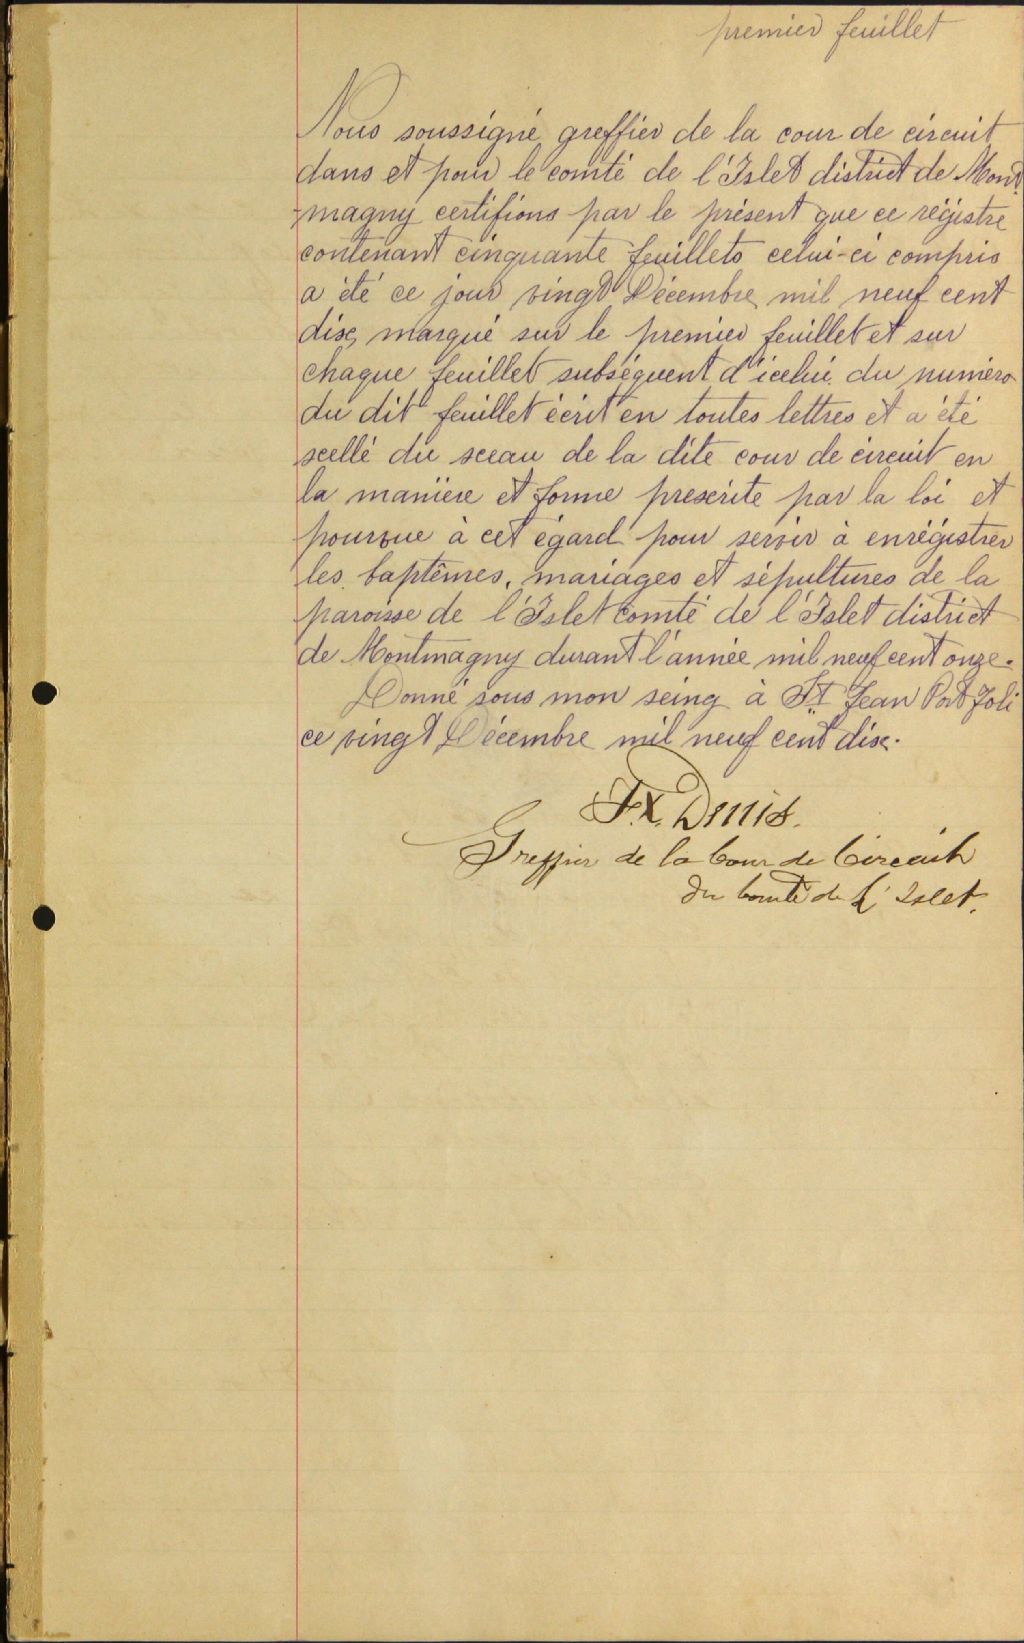 premier feuillet
Nous soussigné greffier de la cour de circuit
dans et pour le comté de l'Islet district de Mont
magny certifions par le présent que ce régistre
contenant cinquante feuillets celui-ci compris
a été ce jour vingt Décembre mil neuf cent
dix, marqué sur le premier feuillet et sur
chaque feuillet subséquent d'icelui du numéro
du dit feuillet écrit en toutes lettres et a été
scellé du sceau de la dite cour de circuit en
la manière et forme prescrite par la loi et
pourvue à cet égard pour servir à enrégistrer
les baptêmes, mariages et sépultures de la
paroisse de l'Islet comté de l'Islet district
de Montmagny durant l'année mil neuf cent onze.
Donné sous mon seing à St Jean Port Joli
ce vingt Décembre mil neuf cent dix.
F.X. Denis.
Greffier de la Cour de Circuit
du Comté de L'Islet.